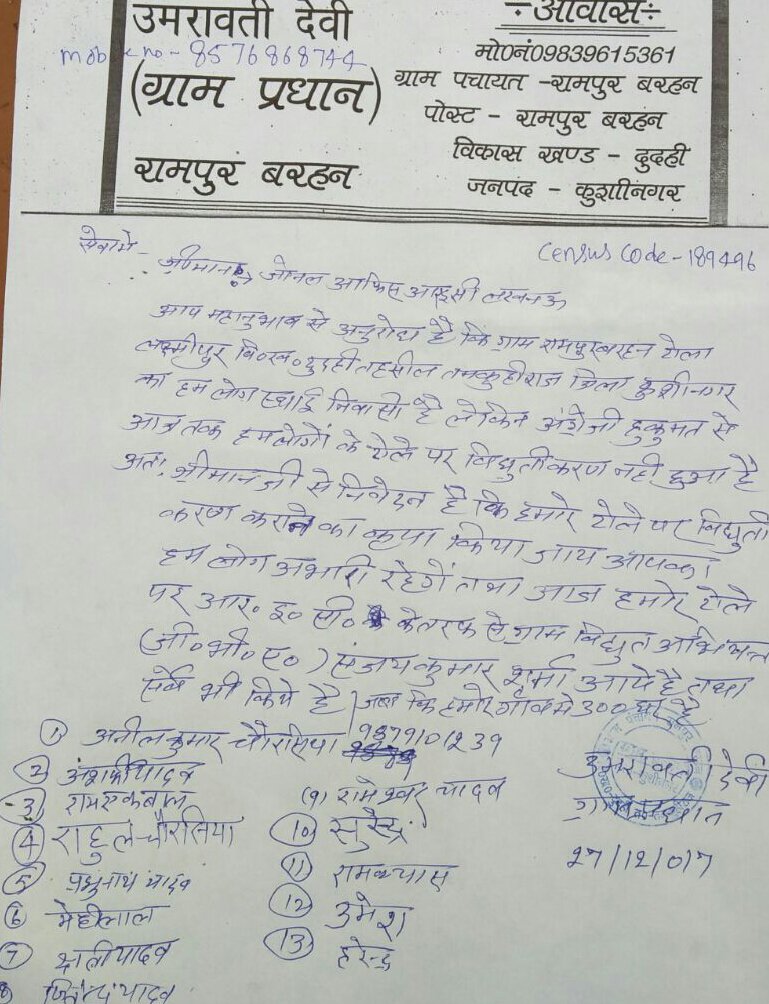 उमरावती देवी
mob no - 8576868744
(ग्राम प्रधान)
रामपुर बरहन
-:आवास:-
मो0नं09839615361
ग्राम पचायत -रामपुर बरहन
पोस्ट - रामपुर बरहन
विकास खण्ड - दुदही
जनपद - कुशीनगर
Census Code - 189496
सेवामे -
श्रीमान जोनल आफिस आरइसी लखनऊ
आप महानुभाव से अनुरोध है कि ग्राम रामपुर बरहन टोला
लक्ष्मीपुर वि०ख० दुदही तहसील तमकुहीराज जिला कुशीनगर
का हम लोग स्थाई निवासी है लेकिन अंग्रेजी हुकुमत से
आज तक हमलोगों के टोले पर विद्युतीकरण नही हुआ है
अतः श्रीमान जी से निवेदन है कि हमारे टोले पर विद्युती
करण कराने का कृपा किया जाय आपका
हम लोग अभारी रहेगें तथा आज हमारे टोले
पर आर० इ० सी० के तरफ से ग्राम विद्युत अभियन्ता
(जी०भी०ए०) संजय कुमार शर्मा आये है तथा
सर्वे भी किये है जब कि हमारे गाँव मे 300 घर है
① अनील कुमार चौरसिया 9879101239
② यादव
③ रामएकबाल
④ राहुल चौरसिया
⑤ प्रभुनाथ यादव
⑥ मेहीलाल
⑦ यादव
⑧ जितेन्द्र यादव
(9) रामेश्वर यादव
⑩ सुरेन्द्र
⑪ रामब्यास
⑫ उमेश
⑬ हरेन्द्र
उमरावती देवी
ग्राम प्रधान
27/12/017